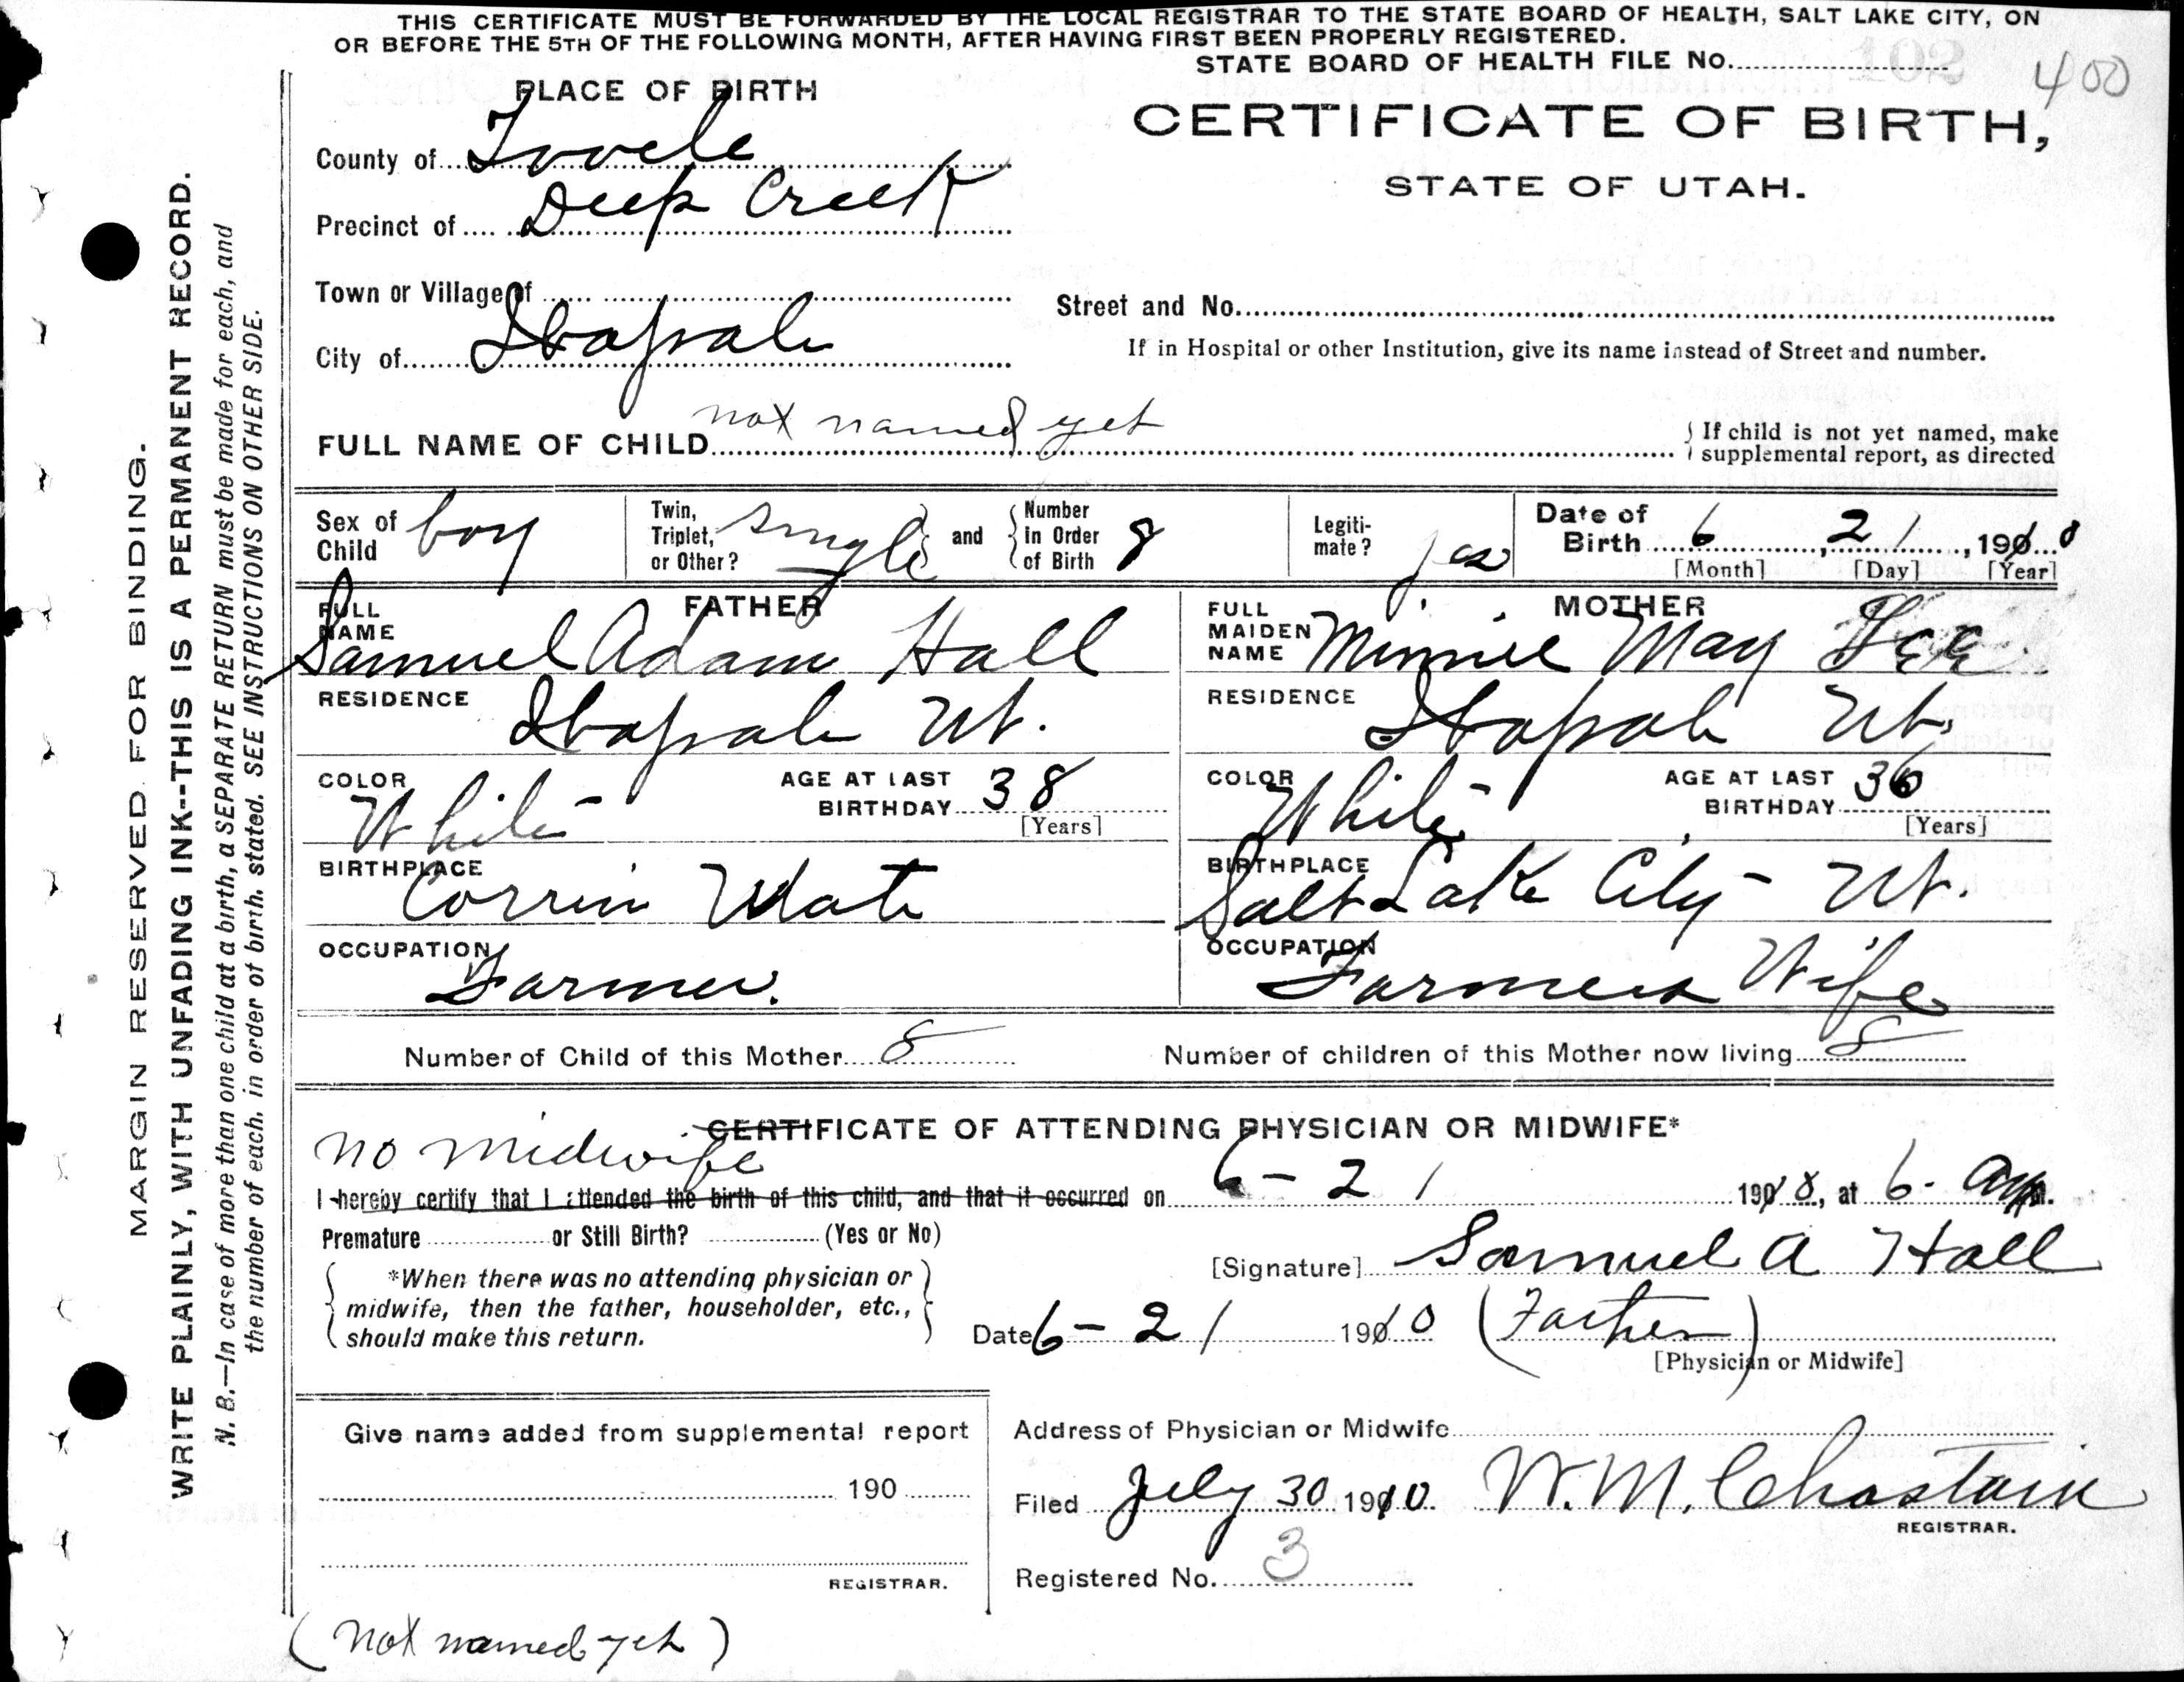 THIS CERTIFICATE MUST BE FORWARDED BY THE LOCAL REGISTRAR TO THE STATE BOARD OF HEALTH, SALT LAKE CITY, ON
OR BEFORE THE 5TH OF THE FOLLOWING MONTH, AFTER HAVING FIRST BEEN PROPERLY REGISTERED.
STATE BOARD OF HEALTH FILE No. 102 400
PLACE OF BIRTH
CERTIFICATE OF BIRTH,
STATE OF UTAH.
County of Tooele
Precinct of Deep Creek
Town or Village of
Street and No.
City of Ibapah
If in Hospital or other Institution, give its name instead of Street and number.
FULL NAME OF CHILD not named yet
If child is not yet named, make supplemental report, as directed
Sex of Child boy
Twin, Triplet, or Other? single and Number in Order of Birth 8
Legitimate? yes
Date of Birth 6, 21, 1910
[Month] [Day] [Year]
FATHER
FULL NAME Samuel Adam Hall
RESIDENCE Ibapah Ut.
COLOR White
AGE AT LAST BIRTHDAY 38
[Years]
BIRTHPLACE Corrin Utah
OCCUPATION Farmer.
MOTHER
FULL MAIDEN NAME Minnie May
RESIDENCE Ibapah Ut.
COLOR White
AGE AT LAST BIRTHDAY 36
[Years]
BIRTHPLACE Salt Lake City Ut.
OCCUPATION Farmers Wife
Number of Child of this Mother 8
Number of children of this Mother now living 8
CERTIFICATE OF ATTENDING PHYSICIAN OR MIDWIFE*
no midwife
I hereby certify that I attended the birth of this child, and that it occurred on 6-21 1910, at 6. am.
Premature or Still Birth? (Yes or No)
[Signature] Samuel A Hall
*When there was no attending physician or
midwife, then the father, householder, etc.,
should make this return.
Date 6-21 1910 (Father)
[Physician or Midwife]
Give name added from supplemental report
190
REGISTRAR.
Address of Physician or Midwife
Filed July 30 1910. W. M. Chastain
REGISTRAR.
Registered No. 3
(not named yet)
MARGIN RESERVED FOR BINDING.
WRITE PLAINLY, WITH UNFADING INK--THIS IS A PERMANENT RECORD.
N. B.—In case of more than one child at a birth, a SEPARATE RETURN must be made for each, and
the number of each, in order of birth, stated. SEE INSTRUCTIONS ON OTHER SIDE.